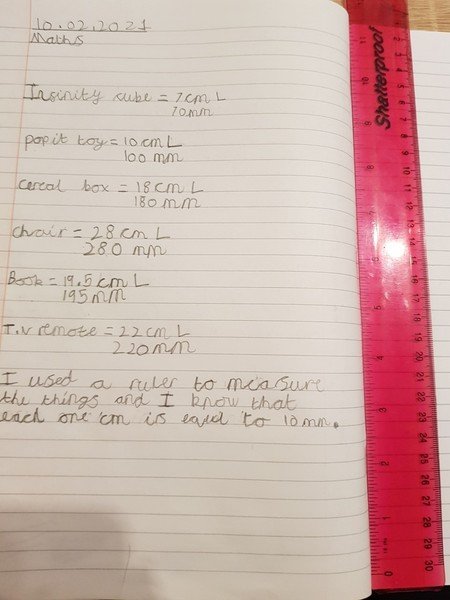 10.02.2021
Maths
Insinity cube = 7cm L
70mm
pop it toy = 10cm L
100 mm
cereal box = 18cm L
180 mm
chair = 28 cm L
280 mm
Book = 19.5cm L
195mm
T.V remote = 22cm L
220mm
I used a ruler to measure
the things and I know that
each one cm is equal to 10mm.
Shatterproof
11
10
9
8
7
6
5
4
3
2
1
0
2
3
4
5
6
7
8
9
10
11
12
13
14
15
16
17
18
19
20
21
22
23
24
25
26
27
28
29
30